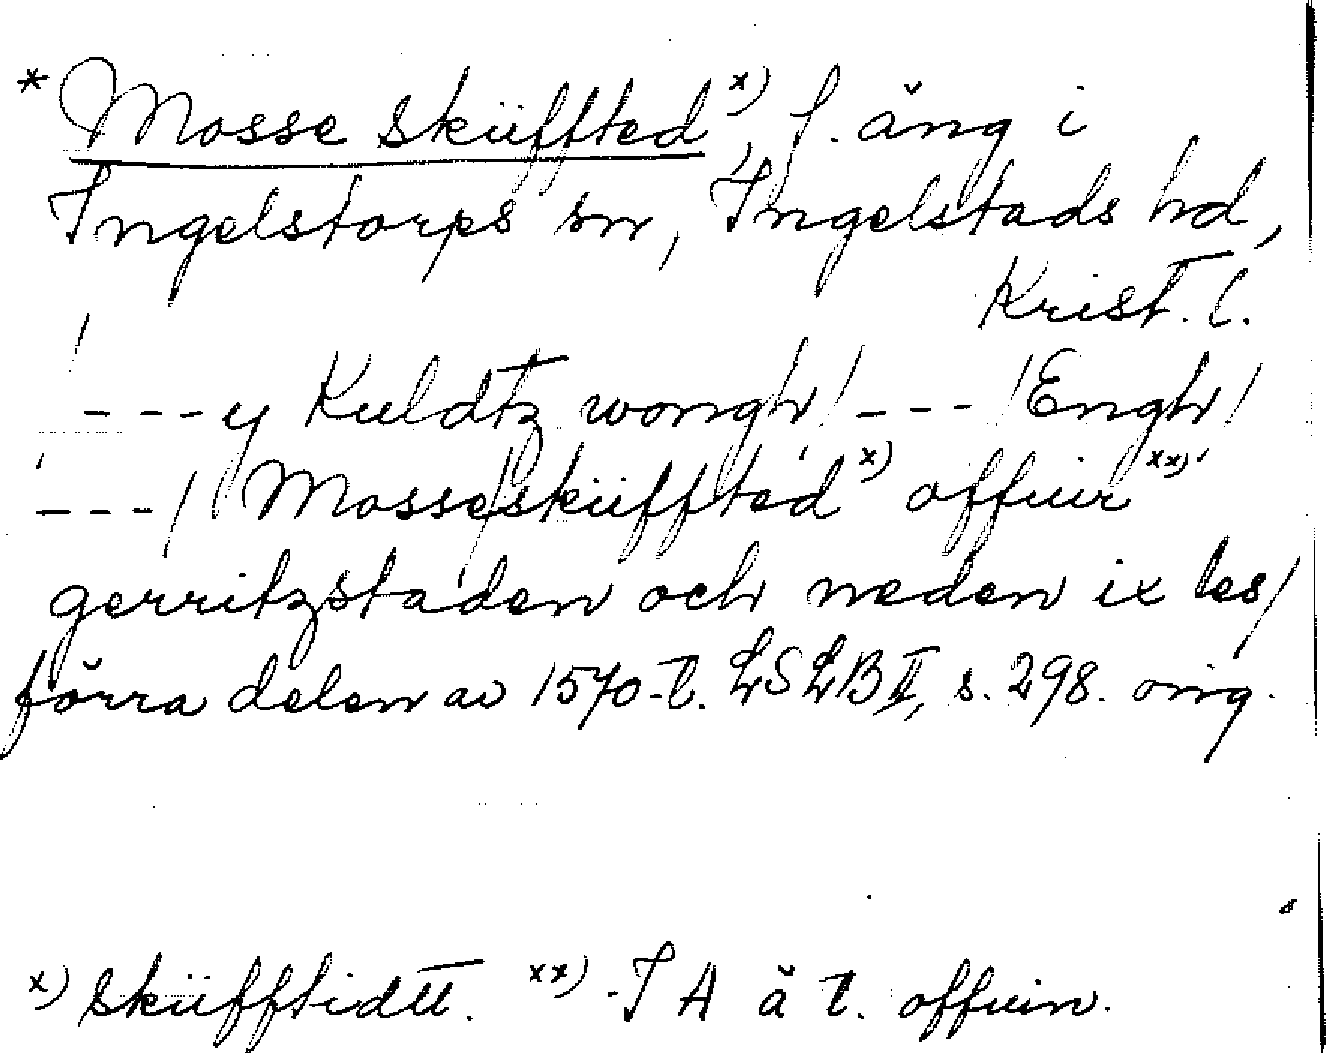 * Mosse sküffted x), f. äng i
Ingelstorps sn, Ingelstads hd,
Krist. l.
/---y Kuldtz wongh/ --- /Engh/
---/ Mosse/sküffted x) offuir xx)
gerritzstaden och neden ix les/
förra delen av 1570-t. LSLB II, s. 298. orig.
x) sküfftidtt. xx) I A ä t. offuin.